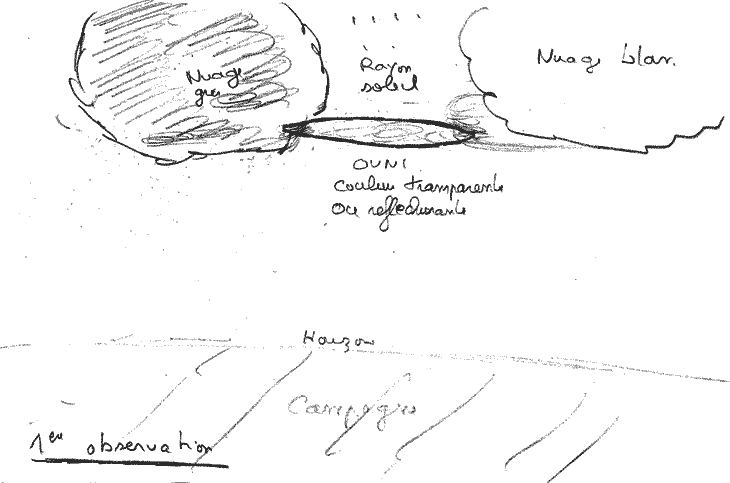 Nuage
gris
Rayon
soleil
Nuage blan.
OUNI
couleur transparente
ou reflechissante
Horizon
Campagne
1ere observation